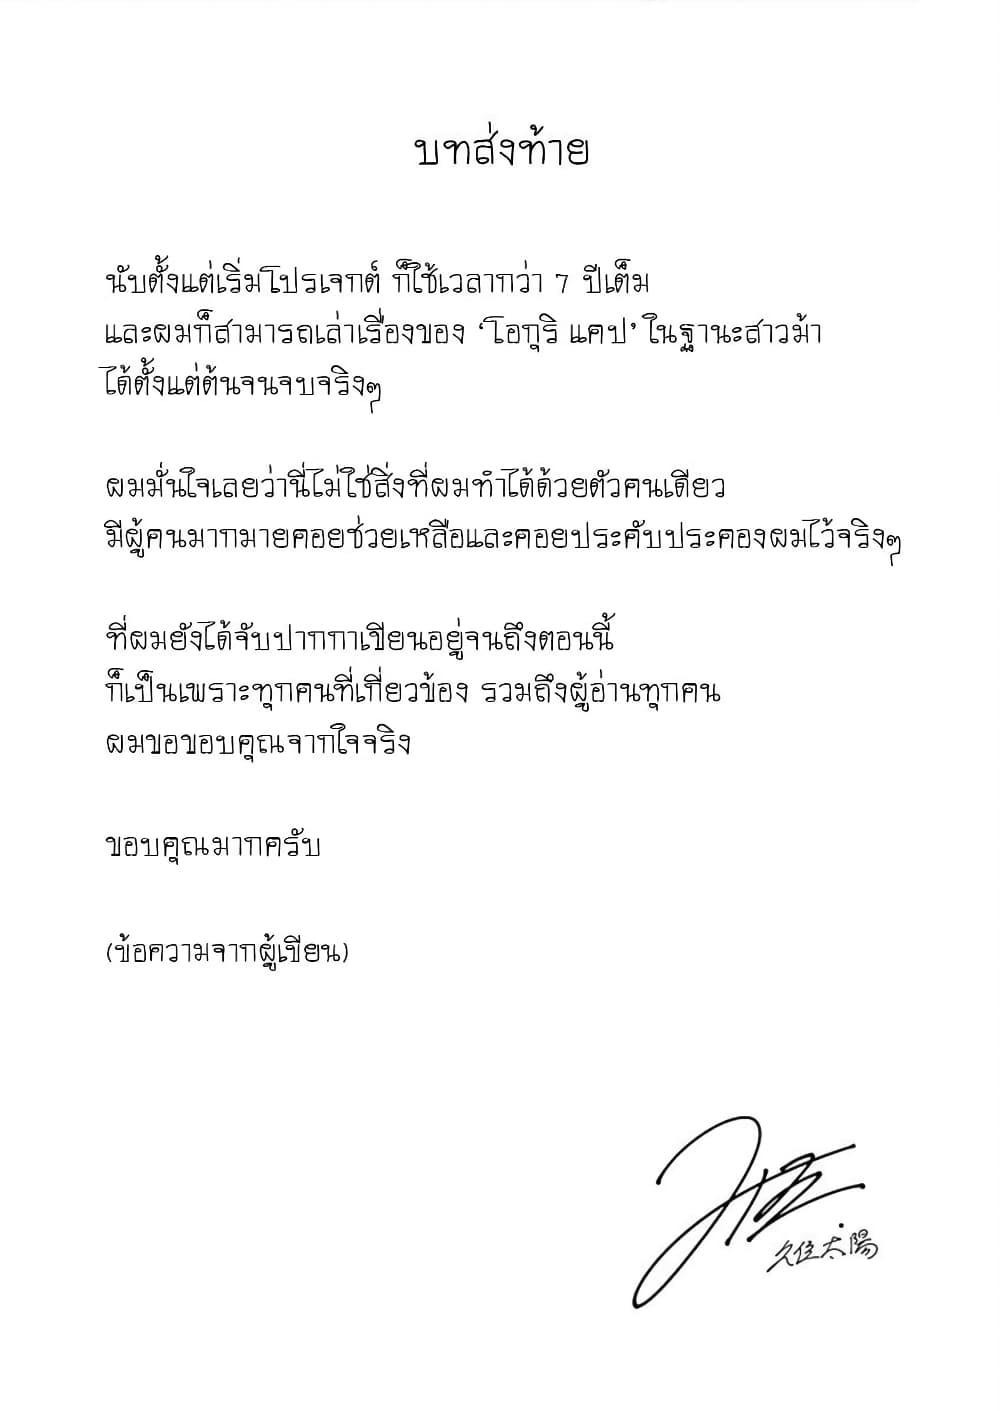 บทส่งท้าย
นับตั้งแต่เริ่มโปรเจกต์ ก็ใช้เวลากว่า 7 ปีเต็ม
และผมก็สามารถเล่าเรื่องของ ‘โอกุริ แคป’ ในฐานะสาวม้า
ได้ตั้งแต่ต้นจนจบจริงๆ
ผมมั่นใจเลยว่านี่ไม่ใช่สิ่งที่ผมทำได้ด้วยตัวคนเดียว
มีผู้คนมากมายคอยช่วยเหลือและคอยประคับประคองผมไว้จริงๆ
ที่ผมยังได้จับปากกาเขียนอยู่จนถึงตอนนี้
ก็เป็นเพราะทุกคนที่เกี่ยวข้อง รวมถึงผู้อ่านทุกคน
ผมขอขอบคุณจากใจจริง
ขอบคุณมากครับ
(ข้อความจากผู้เขียน)
久住太陽